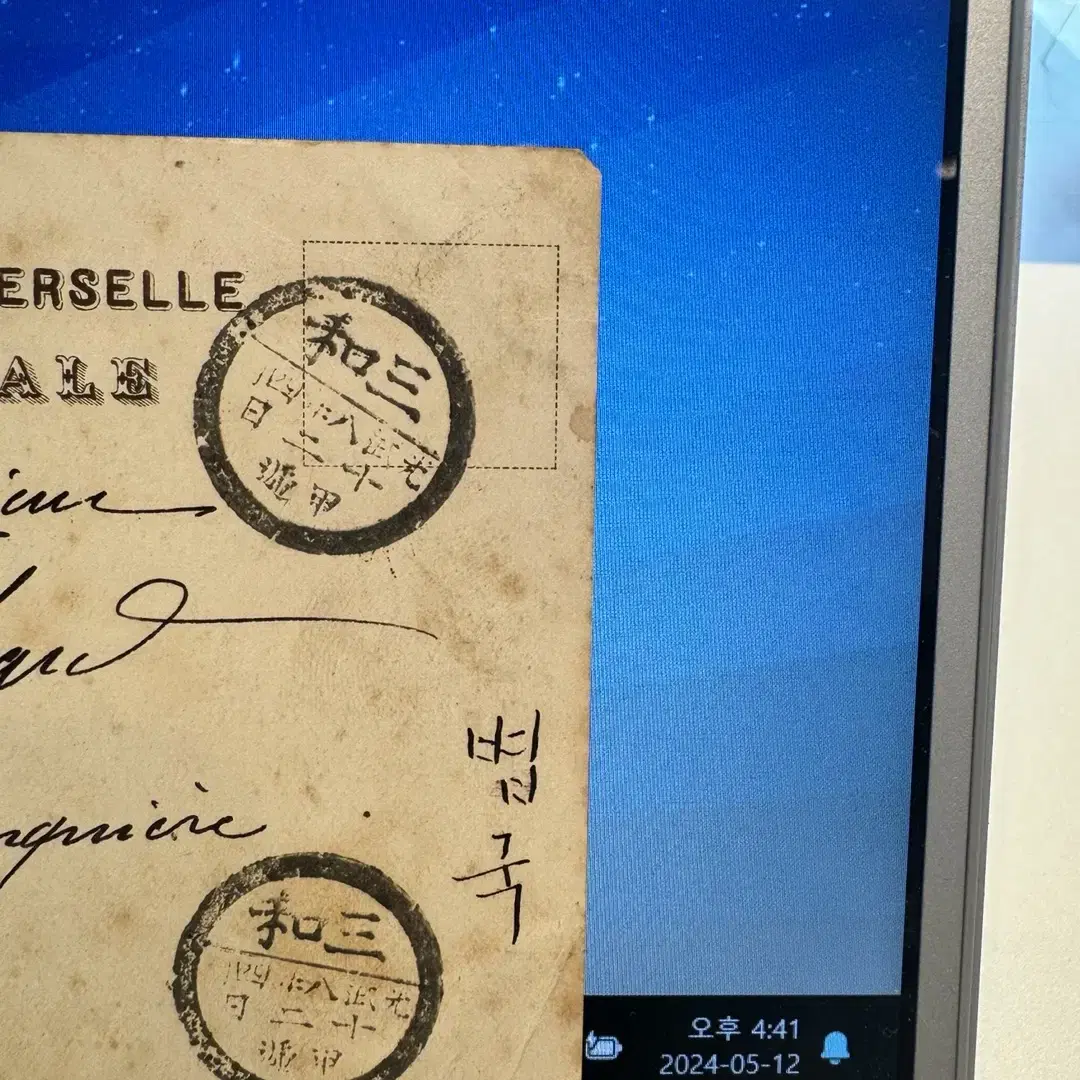 ERSELLE
ALE
三和
光武八年四月
十二日
甲號
법국
三和
光武八年四月
十二日
甲號
오후 4:41
2024-05-12